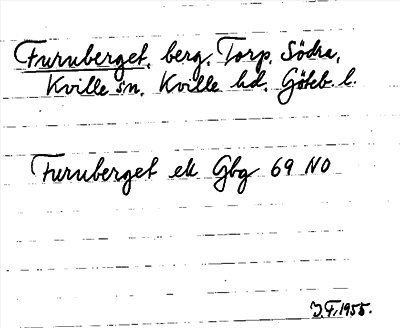 Furuberget, berg. Torp, Södra,
Kville sn. Kville hd. Göteb. l.
Furuberget ek Gbg 69 NO
J.F. 1955.